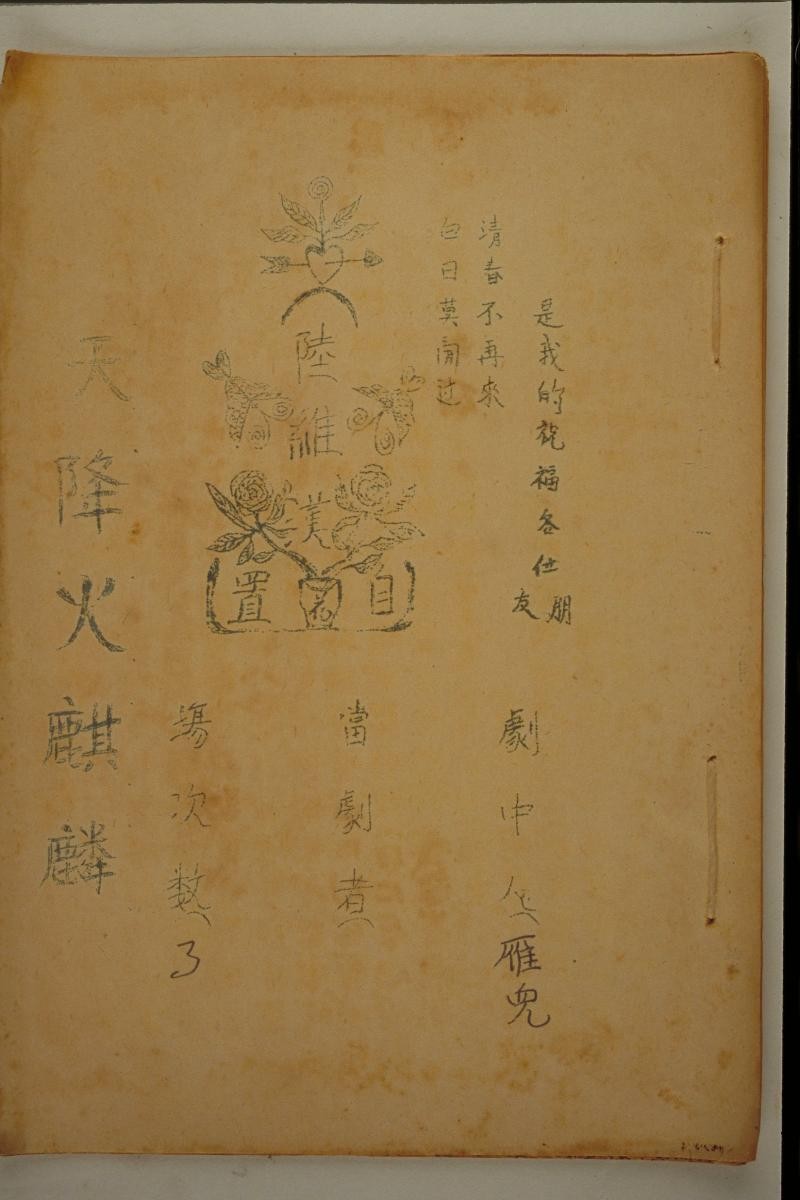 是我的祝福各仕朋友
清春不再來
白日莫閒过
陸維美
自置
劇中人(雁兒
當劇者(
場次数(3
天降火麒麟